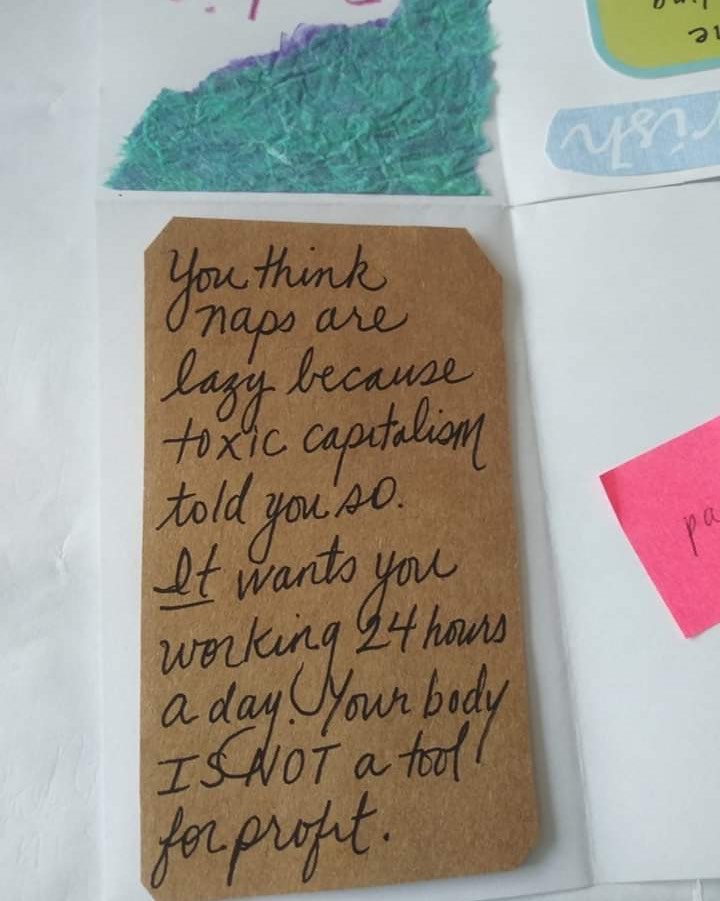 You think
naps are
lazy because
toxic capitalism
told you so.
It wants you
working 24 hours
a day. Your body
IS NOT a tool
for profit.
pa